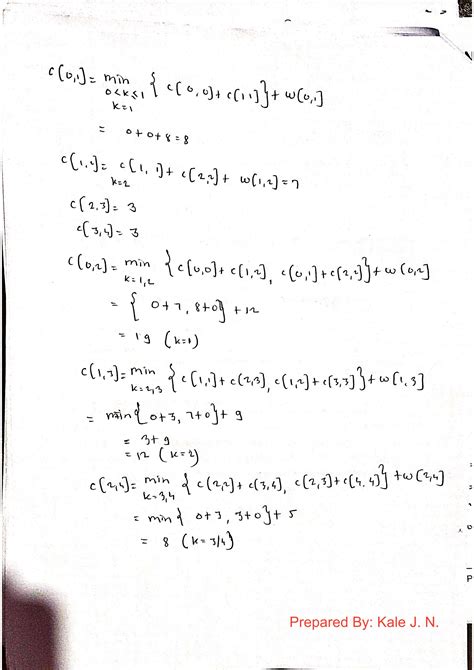 c[0,1]= min { c[0,0]+ c[1,1]}+ w[0,1]
0<k≤1
k=1
= 0+0+8=8
c[1,2]= c[1,1]+ c[2,2]+ w[1,2]=7
k=2
c[2,3]= 3
c[3,4]= 3
c[0,2]= min { c[0,0]+ c[1,2], c[0,1]+ c[2,2]}+w[0,2]
k=1,2
= { 0+7, 8+0} +12
= 19 (k=1)
c[1,3]= min { c[1,1]+ c[2,3], c[1,2]+ c[3,3]}+w[1,3]
k=2,3
= min{ 0+3, 7+0}+ 9
= 3+9
= 12 (k=2)
c[2,4]= min { c[2,2]+ c[3,4], c[2,3]+c[4,4]} +w[2,4]
k=3,4
= min{ 0+3, 3+0}+ 5
= 8 (k=3/4)
Prepared By: Kale J. N.